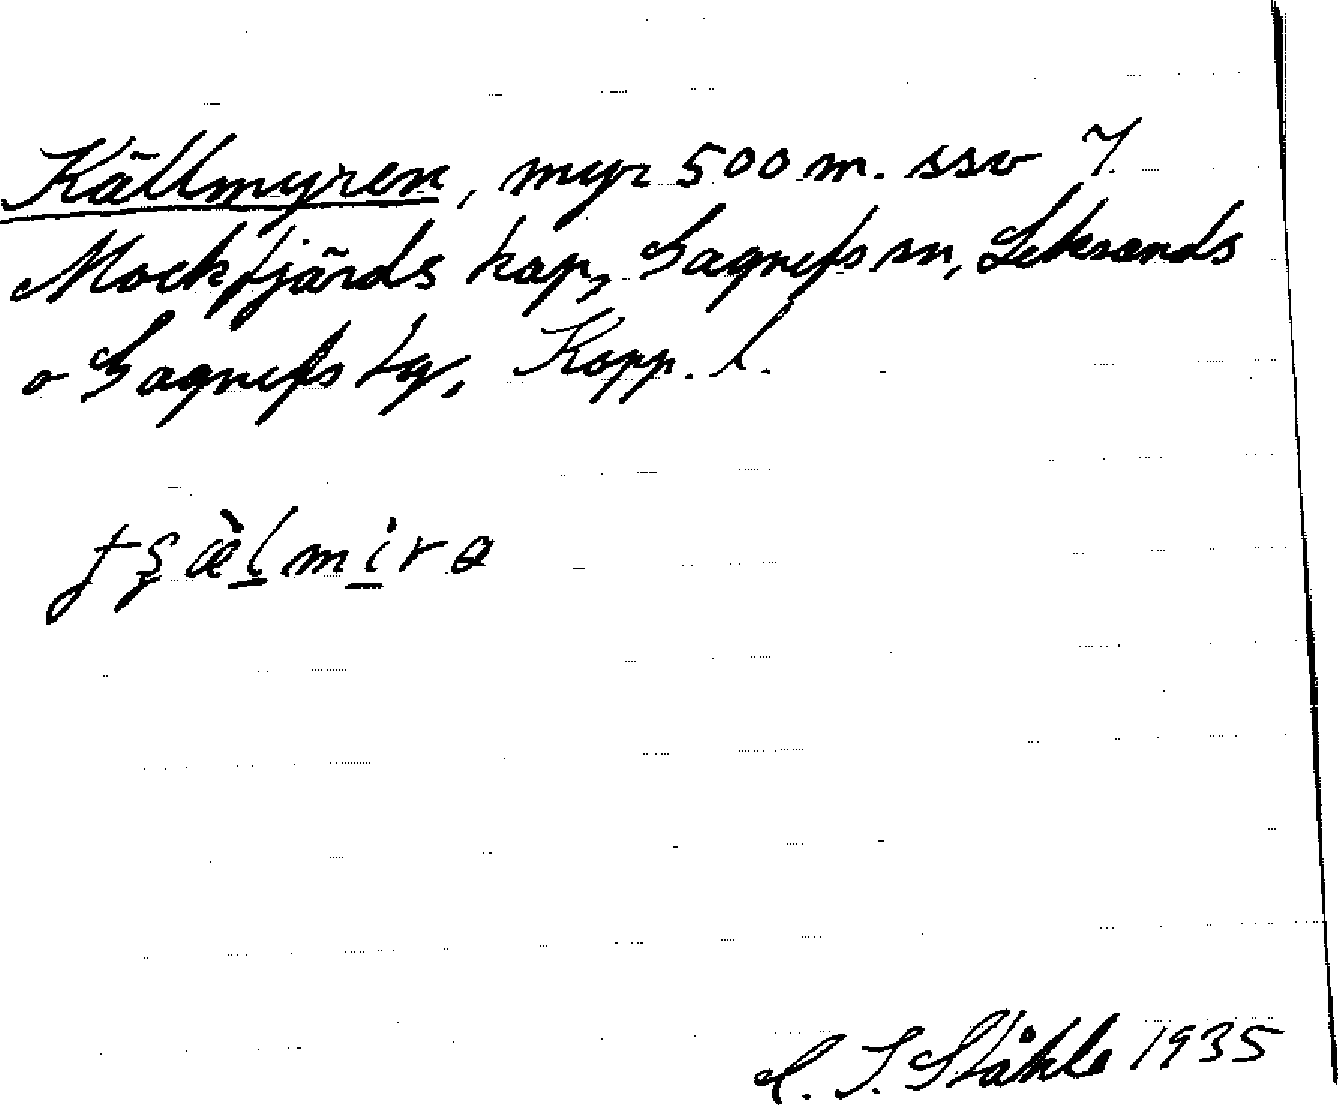 Källmyren, myr 500 m. ssv
Mockfjärds kap, Gagnefs sn, Leksands
o Gagnefs tg, Kopp. l.
C. I. Ståhle 1935